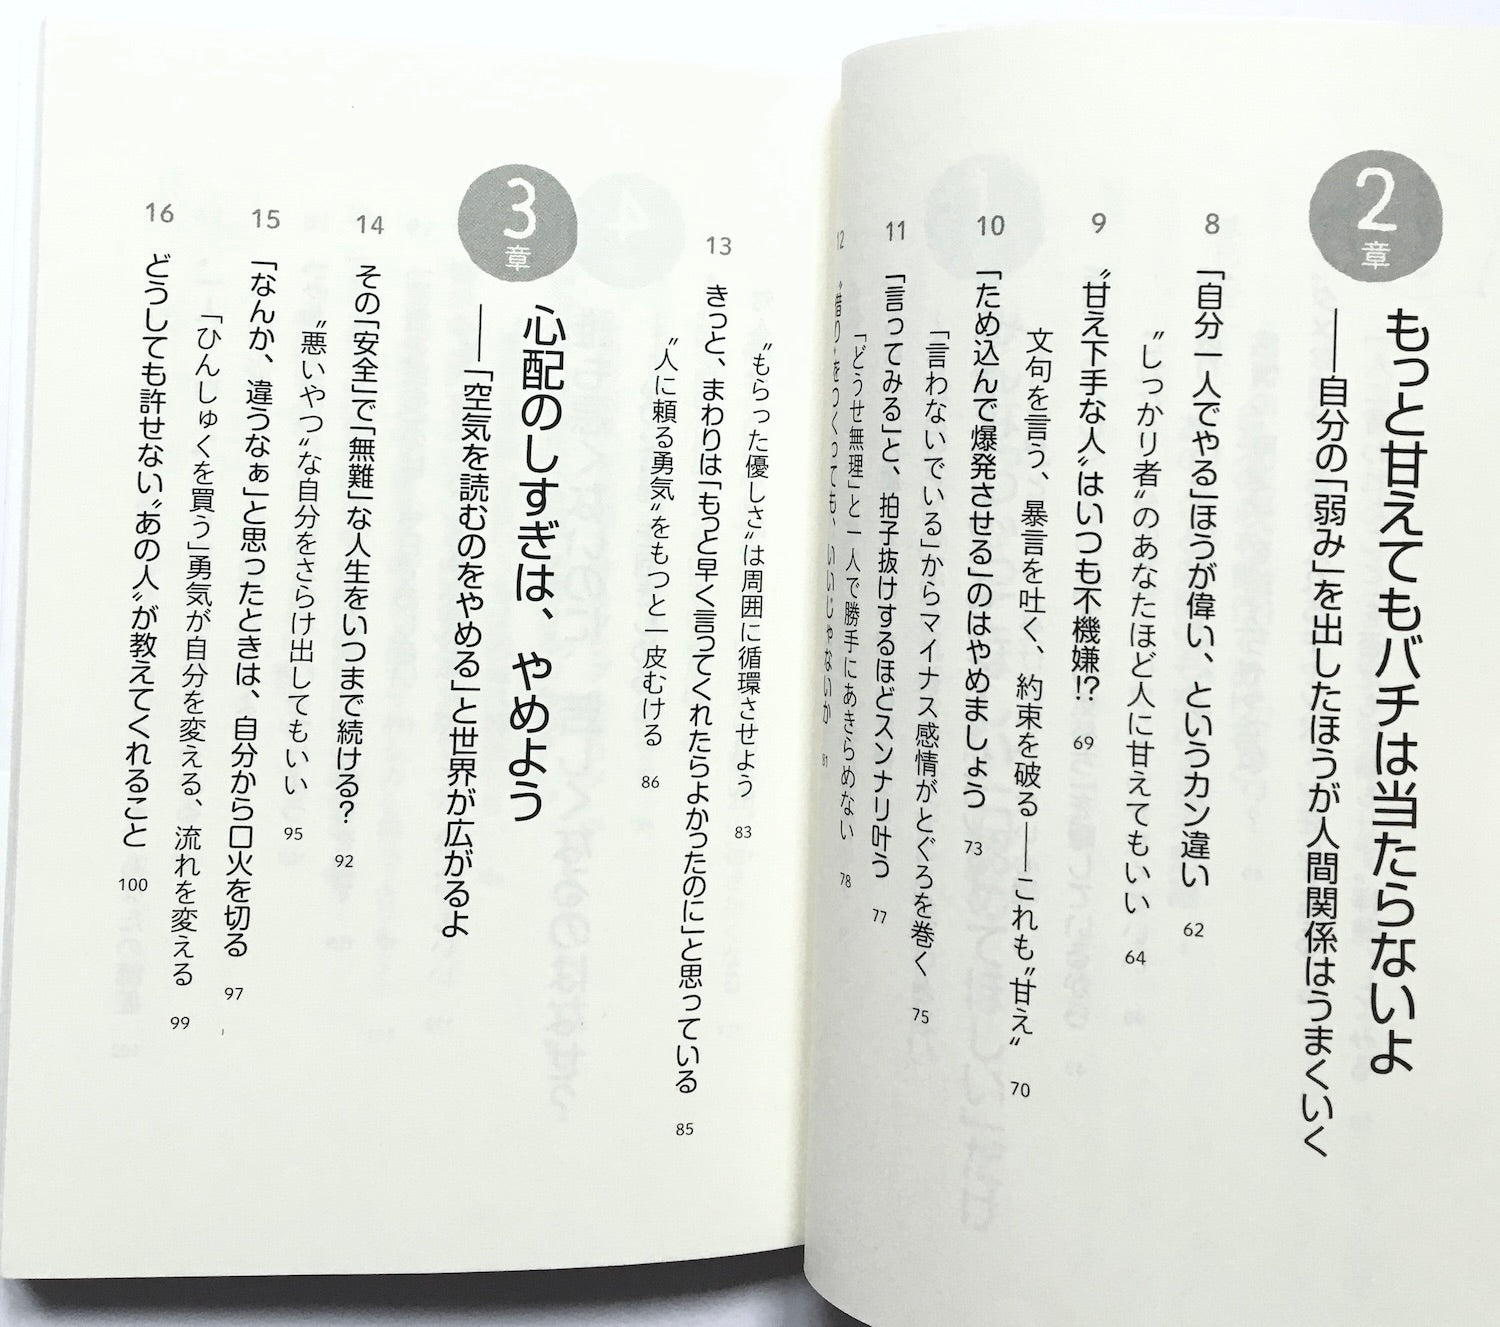 2章
もっと甘えてもバチは当たらないよ
――自分の「弱み」を出したほうが人間関係はうまくいく
8 「自分一人でやる」ほうが偉い、というカン違い 62
〝しっかり者〟のあなたほど人に甘えてもいい 64
9 〝甘え下手な人〟はいつも不機嫌!? 69
文句を言う、暴言を吐く、約束を破る――これも〝甘え〟 70
10 「ため込んで爆発させる」のはやめましょう 73
「言わないでいる」からマイナス感情がとぐろを巻く 75
11 「言ってみる」と、拍子抜けするほどスンナリ叶う 77
「どうせ無理」と一人で勝手にあきらめない 78
12 〝借り〟をつくっても、いいじゃないか 81
〝もらった優しさ〟は周囲に循環させよう 83
13 きっと、まわりは「もっと早く言ってくれたらよかったのに」と思っている 85
〝人に頼る勇気〟をもつと一皮むける 86
3章
心配のしすぎは、やめよう
――「空気を読むのをやめる」と世界が広がるよ
14 その「安全」で「無難」な人生をいつまで続ける? 92
〝悪いやつ〟な自分をさらけ出してもいい 95
15 「なんか、違うなぁ」と思ったときは、自分から口火を切る 97
「ひんしゅくを買う」勇気が自分を変える、流れを変える 99
16 どうしても許せない〝あの人〟が教えてくれること 100